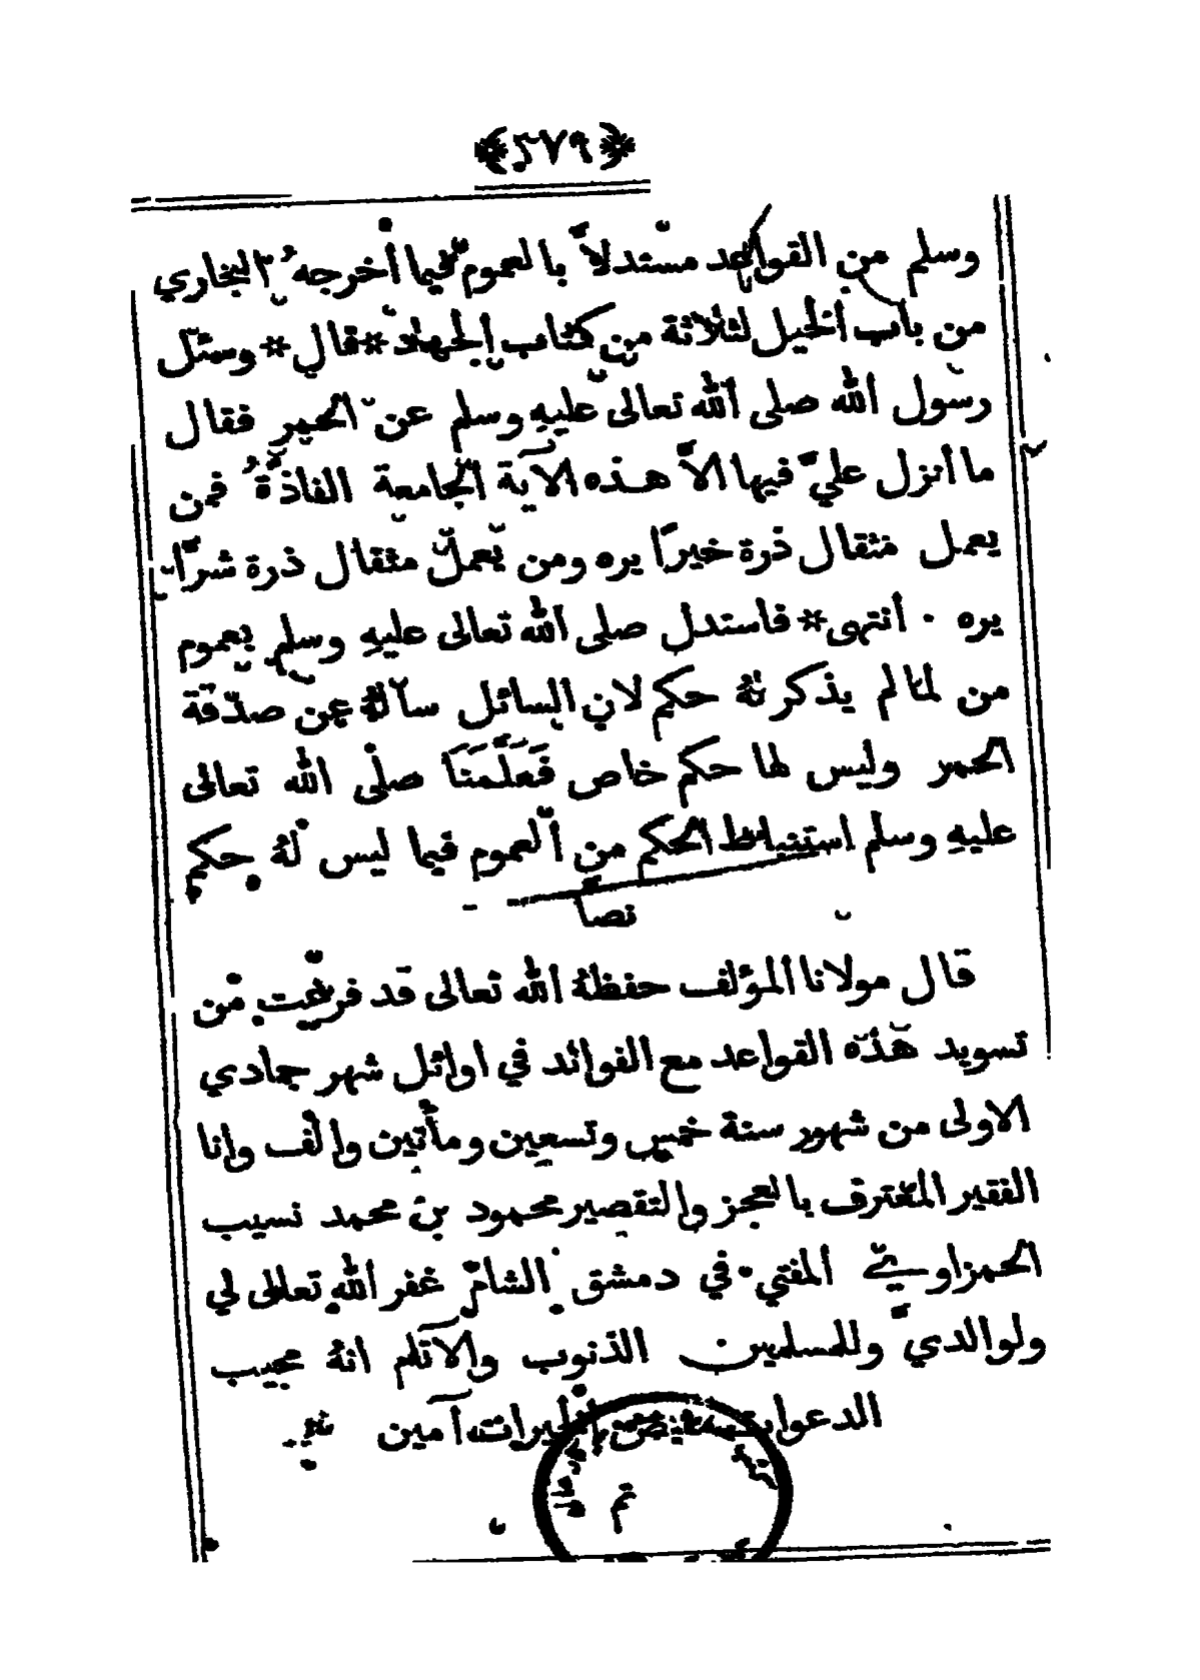 ٥٧٩
وسلم من القواعد مستدلاً بالعموم فيما أخرجه البخاري
من باب الخيل لثلاثة من كتاب الجهاد * قال * وسئل
رسول الله صلى الله تعالى عليهِ وسلم عن الحمر فقال
ما أنزل عليّ فيها الاّ هذه الآية الجامعة الفاذّةُ فمن
يعمل مثقال ذرة خيرًا يره ومن يعمل مثقال ذرة شرًّا
يره . انتهى * فاستدل صلى الله تعالى عليهِ وسلم بعموم
من لما لم يذكر لهُ حكم لان السائل سألهُ عن صدقة
الحمر وليس لها حكم خاص فَعَلَّمَنَا صلّى الله تعالى
عليهِ وسلم استنباط الحكم من العموم فيما ليس لهُ حكم
نصاً
قال مولانا المؤلف حفظهُ الله تعالى قد فرغت من
تسويد هذه القواعد مع الفوائد في اوائل شهر جمادي
الاولى من شهور سنة خمس وتسعين ومأتين والف وانا
الفقير المعترف بالعجز والتقصير محمود بن محمد نسيب
الحمزاوي المفتي في دمشق الشام غفر الله تعالى لي
ولوالديّ وللمسلمين الذنوب والآثام انهُ مجيب
الدعوات بالخيرات آمين
تم